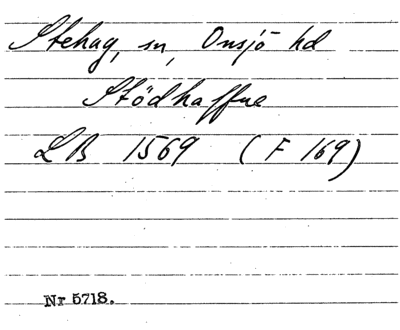 Stehag, sn, Onsjö hd
Stödhaffue
LB 1569 (F 169)
Nr 5718.